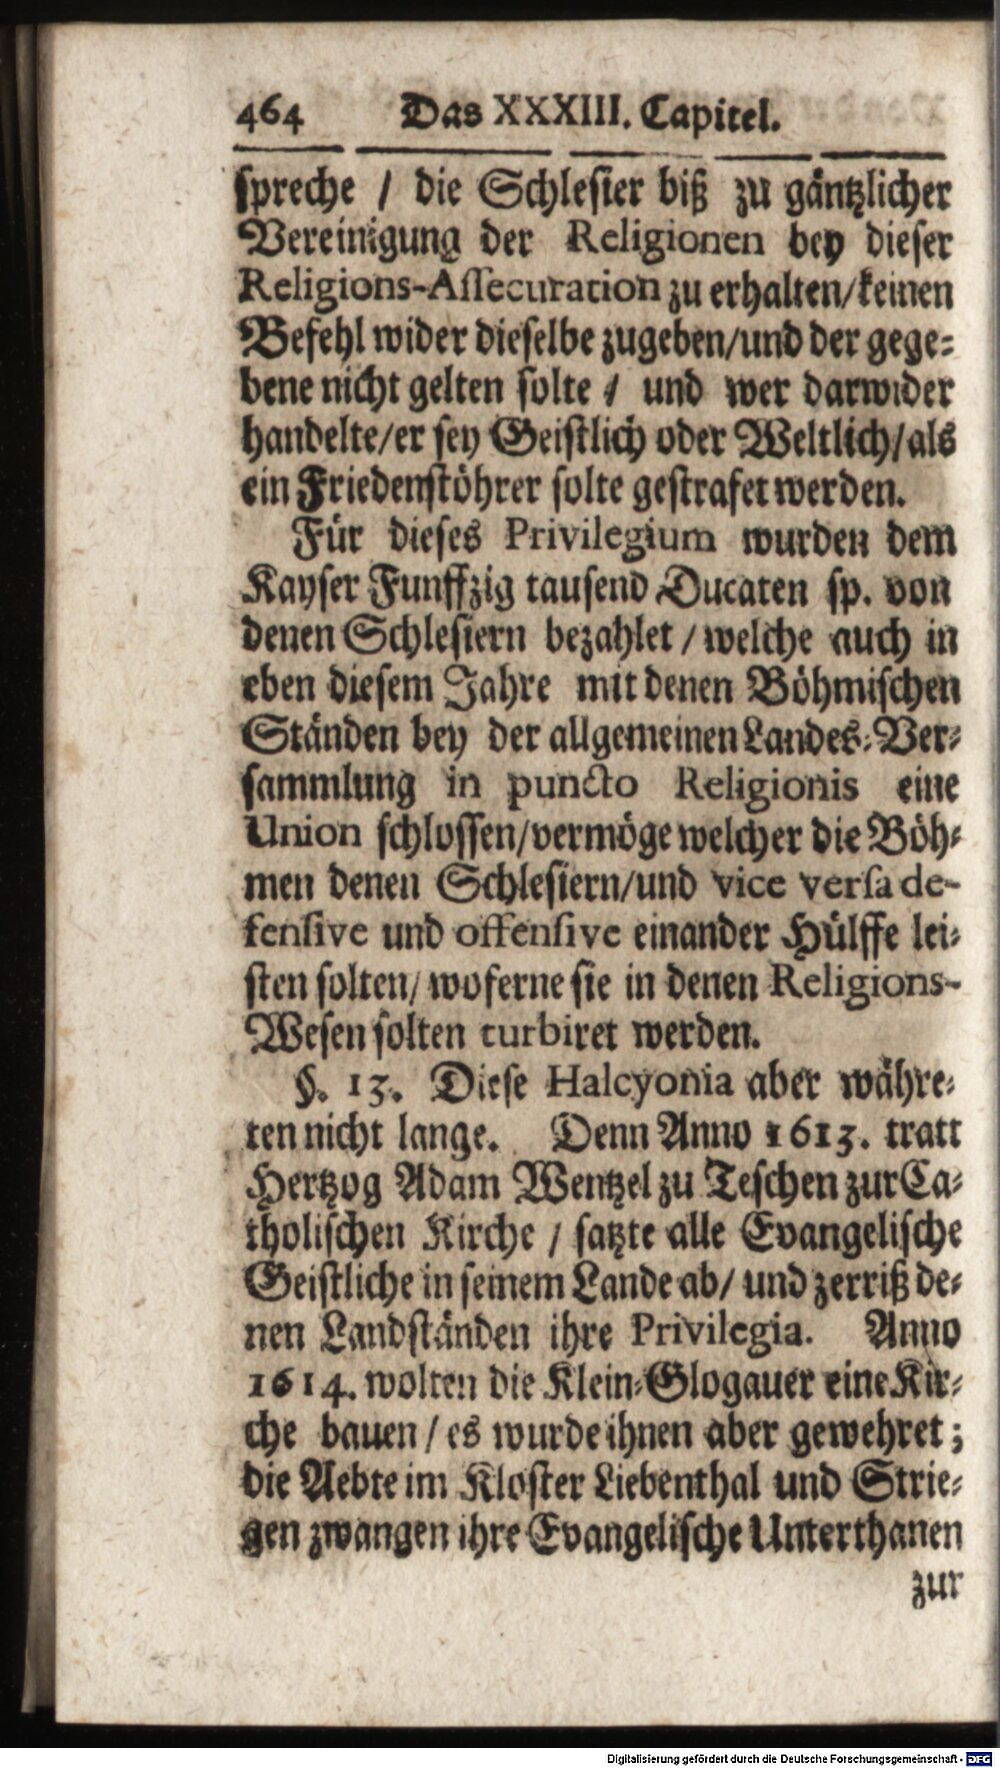 464 Das XXXIII. Capitel.
spreche / die Schlesier biß zu gäntzlicher
Vereinigung der Religionen bey dieser
Religions-Assecuration zu erhalten/keinen
Befehl wider dieselbe zugeben/und der gege-
bene nicht gelten solte / und wer darwider
handelte/er sey Geistlich oder Weltlich/als
ein Friedenstöhrer solte gestrafet werden.
Für dieses Privilegium wurden dem
Kayser Funffzig tausend Ducaten sp. von
denen Schlesiern bezahlet / welche auch in
eben diesem Jahre mit denen Böhmischen
Ständen bey der allgemeinen Landes-Ver-
sammlung in puncto Religionis eine
Union schlossen/vermöge welcher die Böh-
men denen Schlesiern/und vice versa de-
fensive und offensive einander Hülffe lei-
sten solten/ woferne sie in denen Religions-
Wesen solten turbiret werden.
§. 13. Diese Halcyonia aber währe-
ten nicht lange. Denn Anno 1613. tratt
Hertzog Adam Wentzel zu Teschen zur Ca-
tholischen Kirche / satzte alle Evangelische
Geistliche in seinem Lande ab/ und zerriß de-
nen Landständen ihre Privilegia. Anno
1614. wolten die Klein-Glogauer eine Kir-
che bauen / es wurde ihnen aber gewehret;
die Aebte im Kloster Liebenthal und Strie-
gen zwangen ihre Evangelische Unterthanen
zur
Digitalisierung gefördert durch die Deutsche Forschungsgemeinschaft - DFG